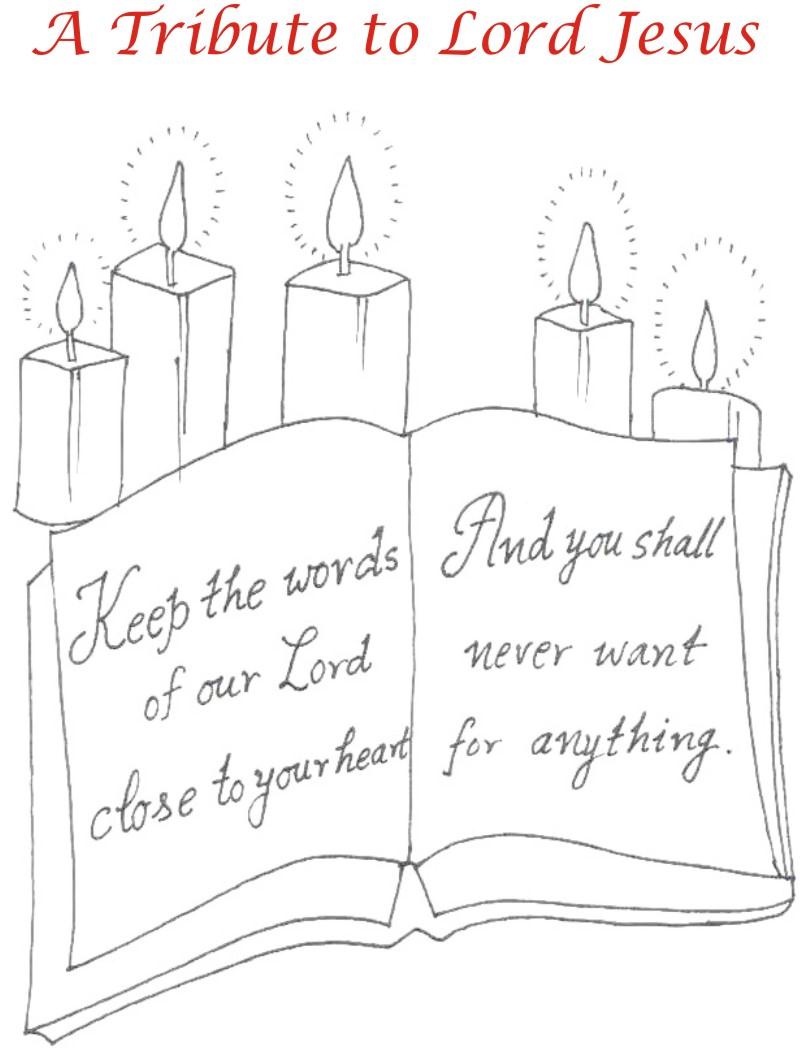 A Tribute to Lord Jesus
Keep the words
of our Lord
close to your heart
And you shall
never want
for anything.